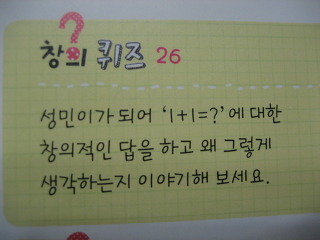 창의 퀴즈 26
성민이가 되어 '1+1=?'에 대한
창의적인 답을 하고 왜 그렇게
생각하는지 이야기해 보세요.